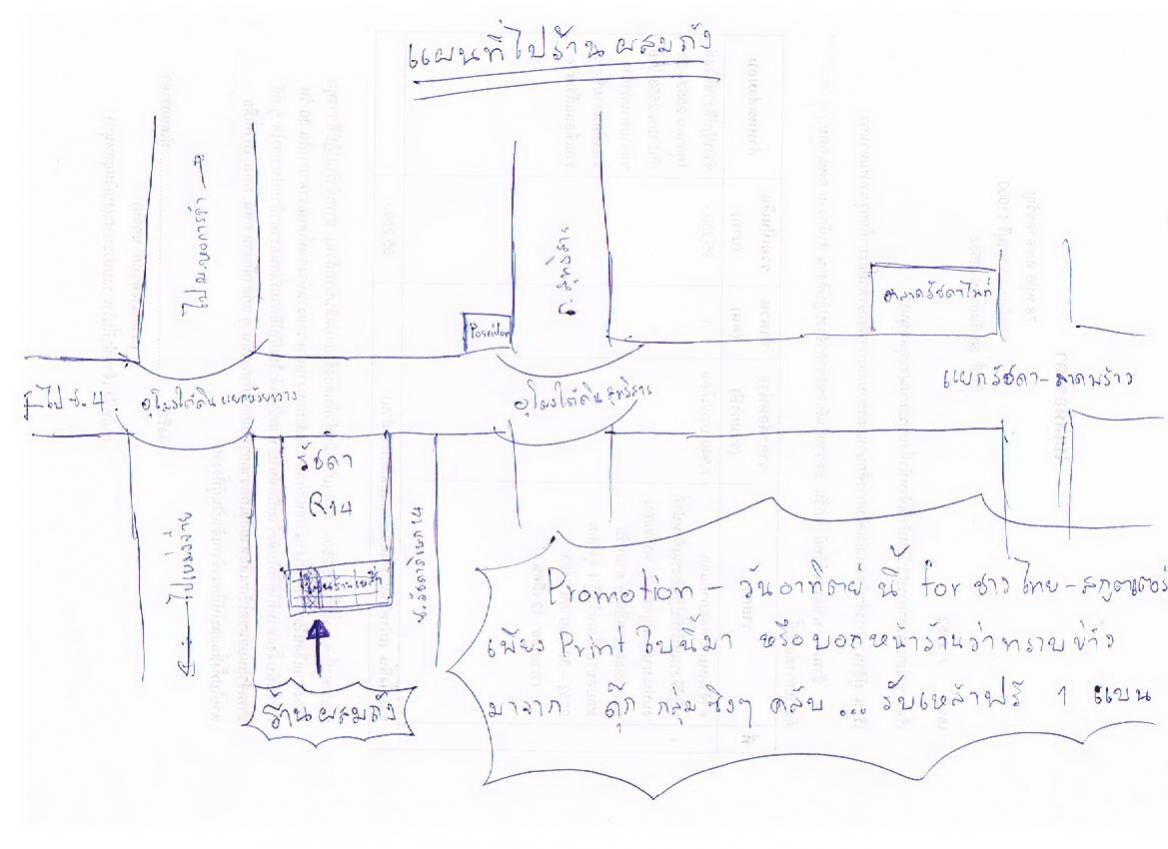 แผนที่ไปร้านผสมถัง
ไปม.หอการค้า
ถ.สุทธิสาร
Poseidon
ตลาดรัชดาไนท์
แยกรัชดา-ลาดพร้าว
ไป ร.4.
อุโมงใต้ดินแยกห้วยขวาง
อุโมงใต้ดินสุทธิสาร
รัชดา
R.14
ซ.รัชดาภิเษก 14
ไปเหม่งจ๋าย
ร้านผสมถัง
Promotion - วันอาทิตย์นี้ for ชาวไทย-สกูตเตอร์
เพียง Print ใบนี้มา หรือบอกหน้าร้านว่าทราบข่าว
มาจาก ตุ๊ก กลุ่มซิ่งๆ คลับ ... รับเหล้าฟรี 1 แบน